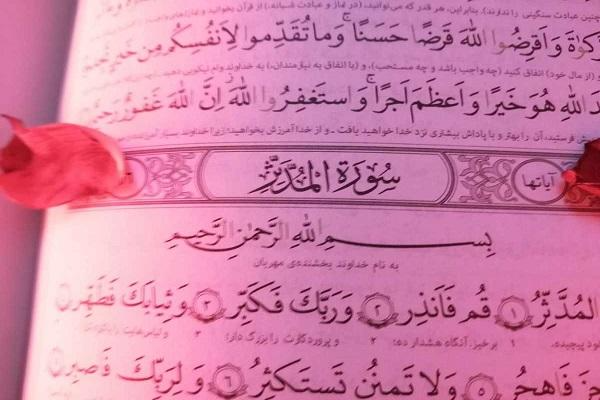 چنین عبادت سنگینی را ندارند). بنابراین، هر قدر که می‌توانید، (در نماز و عبادت شبانه،) از قرآن بخوانید و نمازهای
وَاَقْرِضُوا اللّٰهَ قَرْضًا حَسَنًا وَمَا تُقَدِّمُوا لِاَنْفُسِكُمْ مِنْ خَيْرٍ
و (از مال خود) انفاق کنید (چه واجب باشد و چه مستحب)، و (با انفاق به نیازمندان،) به خداوند وام نیکویی دهید
اللّٰهِ هُوَ خَيْرًا وَاَعْظَمَ اَجْرًا وَاسْتَغْفِرُوا اللّٰهَ اِنَّ اللّٰهَ غَفُورٌ رَحِيمٌ
فرستید، آن را بهتر و با پاداش بیشتری نزد خدا خواهید یافت - و از خدا آمرزش بخواهید؛ زیرا خداوند بسیار
سُورَةُ الْمُدَّثِّرِ آیاتها
بِسْمِ اللّٰهِ الرَّحْمٰنِ الرَّحِيمِ
به نام خداوند بخشنده‌ی مهربان
الْمُدَّثِّرُ ۱ قُمْ فَاَنْذِرْ ۲ وَرَبَّكَ فَكَبِّرْ ۳ وَثِيَابَكَ فَطَهِّرْ
پیچیده. ۱ برخیز، آنگاه هشدار ده؛ ۲ و پروردگارت را بزرگ دار؛ ۳ و لباس‌هایت را پاکیزه
فَاهْجُرْ ۵ وَلَا تَمْنُنْ تَسْتَكْثِرُ ۶ وَلِرَبِّكَ فَاصْبِرْ